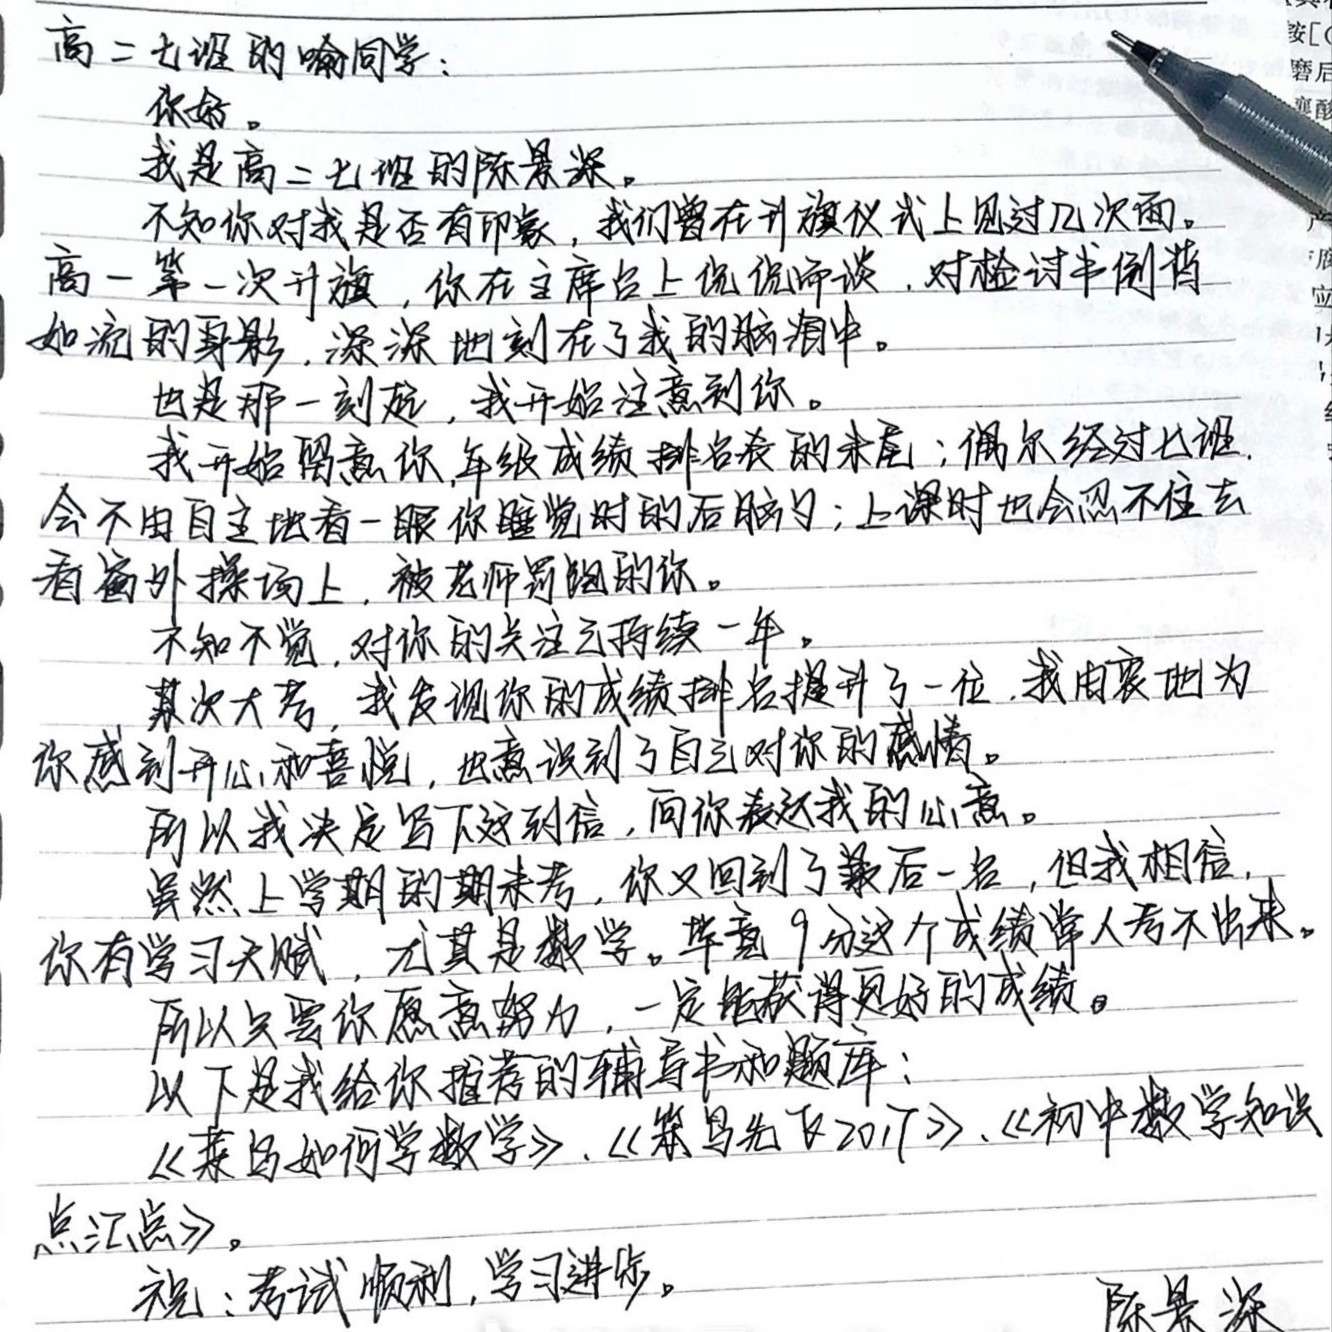 高二七班的喻同学：
你好。
我是高二七班的陈景深。
不知你对我是否有印象，我们曾在升旗仪式上见过几次面。
高一第一次升旗，你在主席台上侃侃而谈，对检讨书倒背
如流的身影，深深地刻在了我的脑海中。
也是那一刻起，我开始注意到你。
我开始留意你年级成绩排名表的末尾；偶尔经过七班，
会不由自主地看一眼你睡觉时的后脑勺；上课时也会忍不住去
看窗外操场上，被老师罚跑的你。
不知不觉，对你的关注已持续一年。
某次大考，我发现你的成绩排名提升了一位，我由衷地为
你感到开心和喜悦，也意识到了自己对你的感情。
所以我决定写下这封信，向你表达我的心意。
虽然上学期的期末考，你又回到了最后一名，但我相信，
你有学习天赋，尤其是数学。毕竟9分这个成绩常人考不出来。
所以只要你愿意努力，一定能获得更好的成绩。
以下是我给你推荐的辅导书和题库：
《菜鸟如何学数学》、《笨鸟先飞2017》、《初中数学知识
点汇点》。
祝：考试顺利，学习进步。
陈景深
鞍[
磨后
襄酸